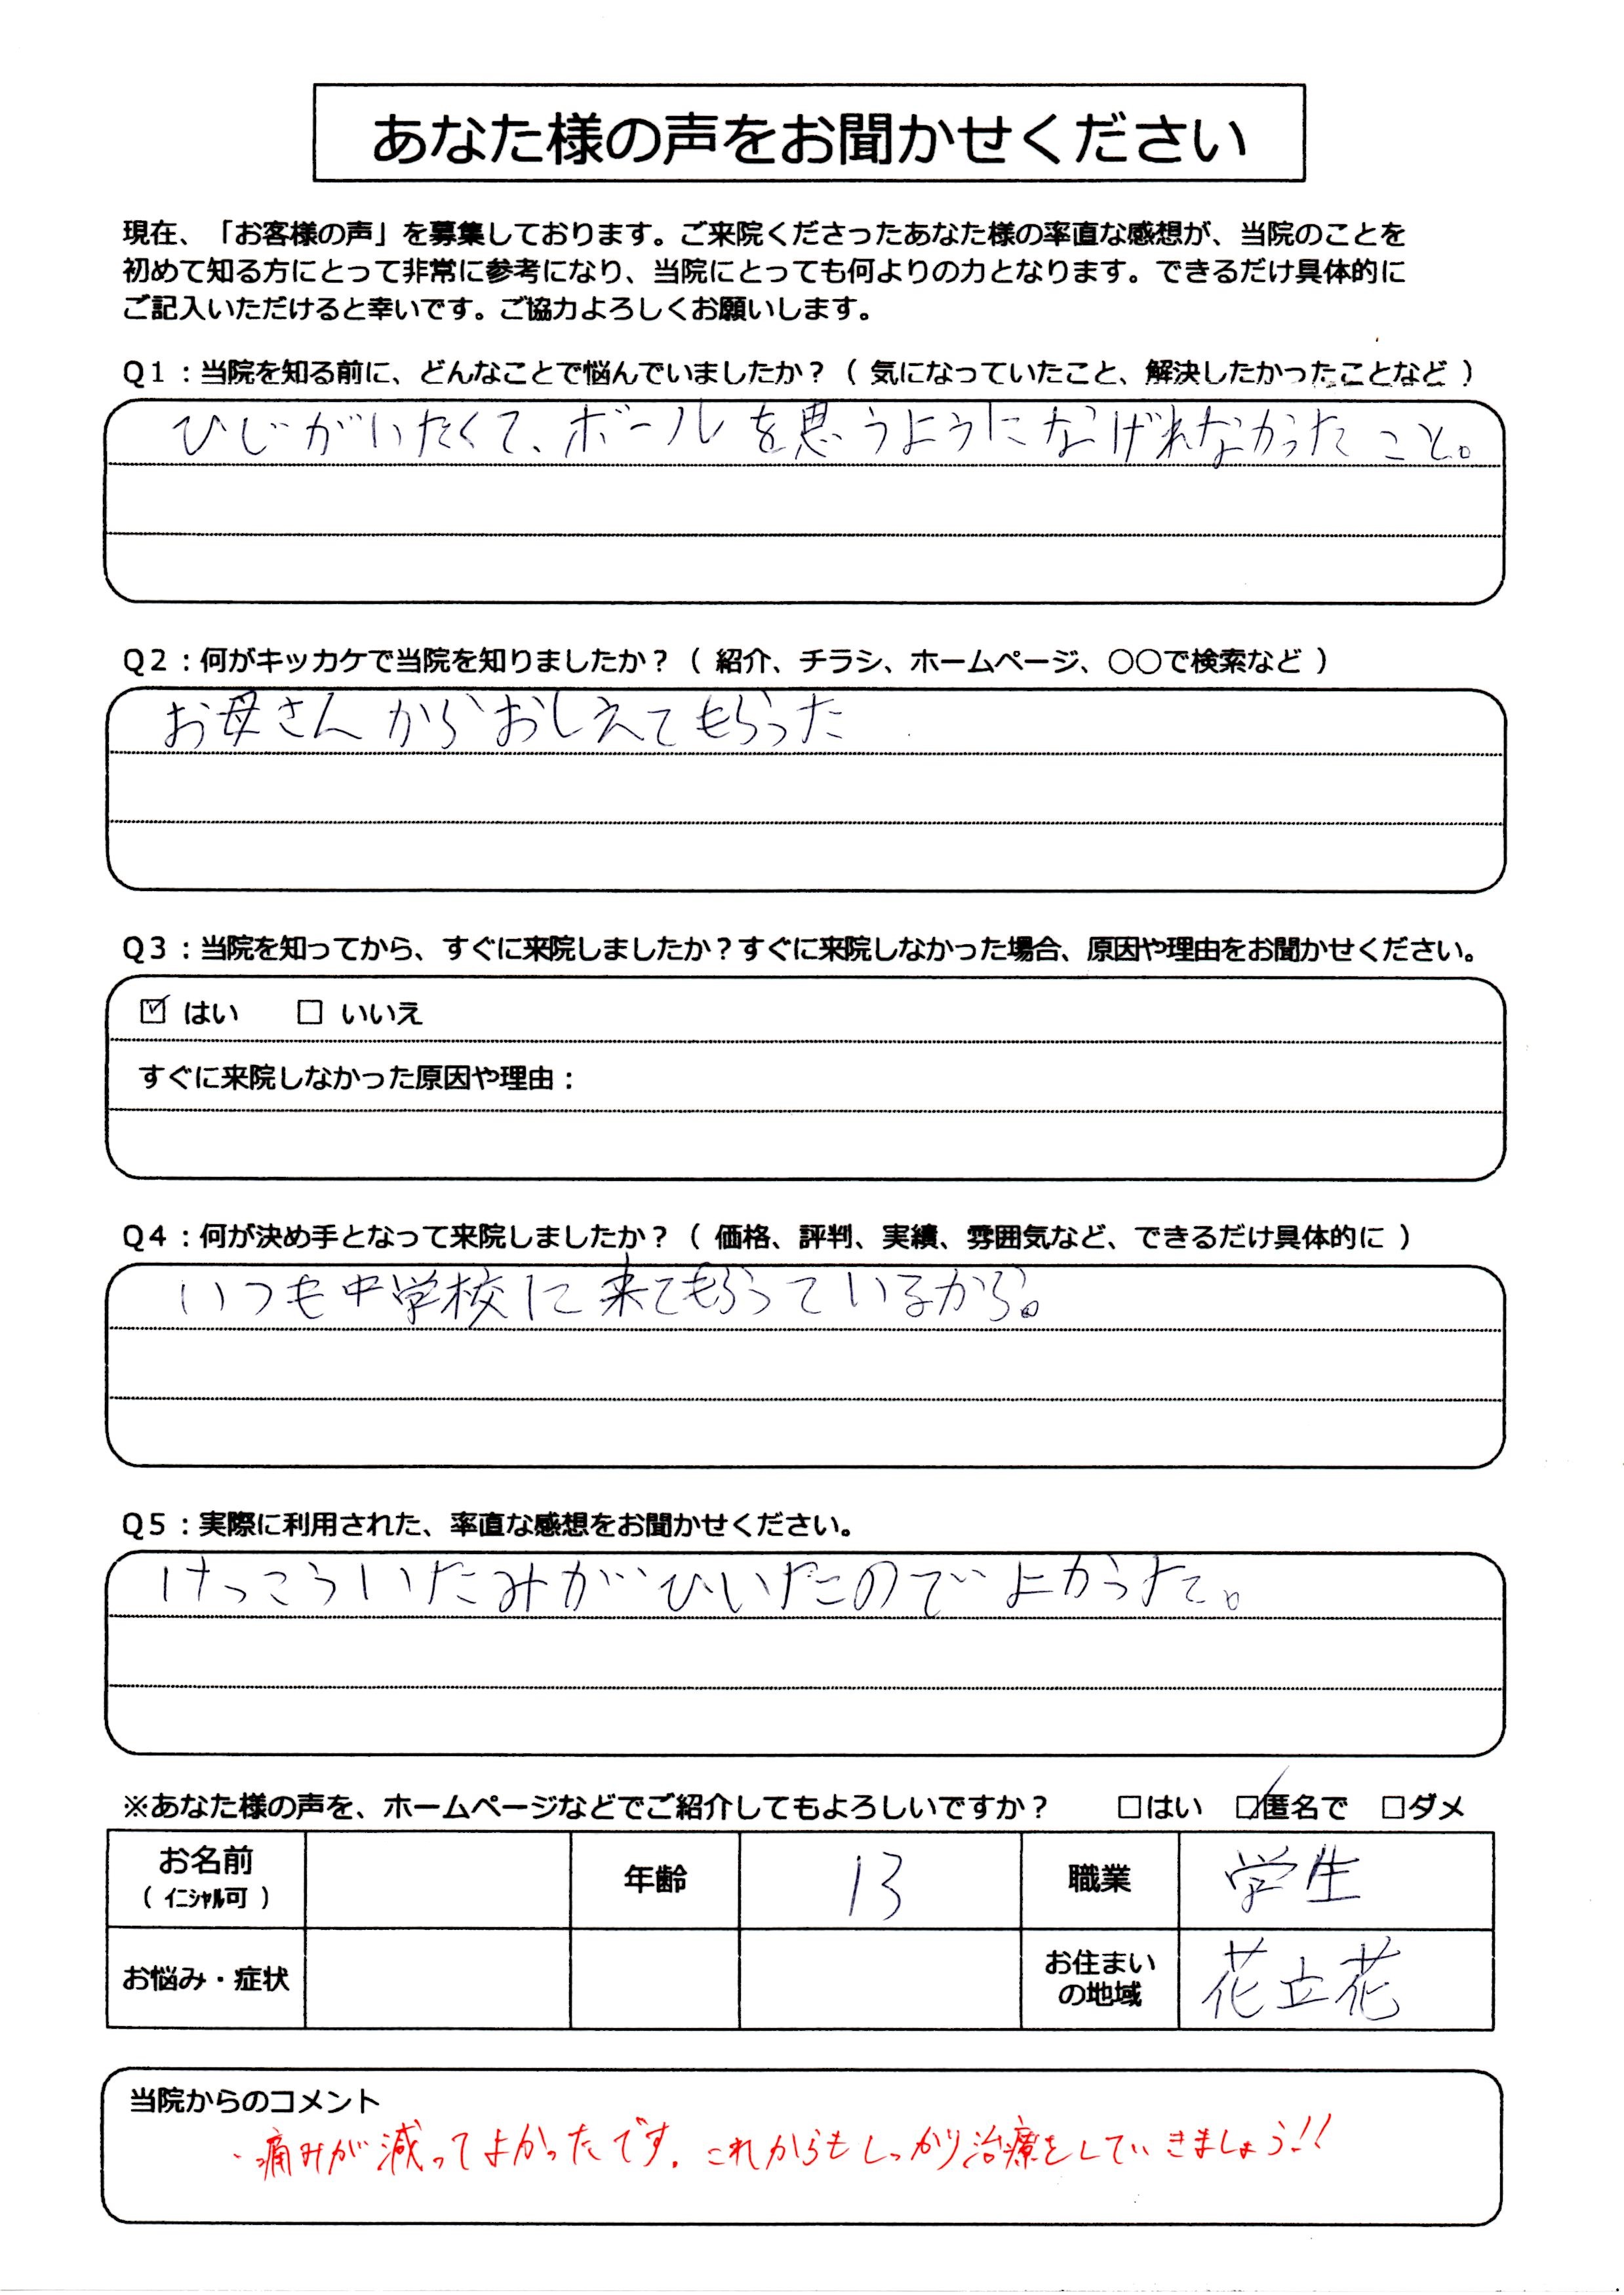 あなた様の声をお聞かせください
現在、「お客様の声」を募集しております。ご来院くださったあなた様の率直な感想が、当院のことを
初めて知る方にとって非常に参考になり、当院にとっても何よりの力となります。できるだけ具体的に
ご記入いただけると幸いです。ご協力よろしくお願いします。
Q1：当院を知る前に、どんなことで悩んでいましたか？（ 気になっていたこと、解決したかったことなど ）
ひじがいたくて、ボールを思うようになげれなかったこと。
Q2：何がキッカケで当院を知りましたか？（ 紹介、チラシ、ホームページ、○○で検索など ）
お母さんからおしえてもらった
Q3：当院を知ってから、すぐに来院しましたか？すぐに来院しなかった場合、原因や理由をお聞かせください。
☑ はい □ いいえ
すぐに来院しなかった原因や理由：
Q4：何が決め手となって来院しましたか？（ 価格、評判、実績、雰囲気など、できるだけ具体的に ）
いつも中学校に来てもらっているから。
Q5：実際に利用された、率直な感想をお聞かせください。
けっこういたみがひいたのでよかった。
※あなた様の声を、ホームページなどでご紹介してもよろしいですか？ □はい ☑匿名で □ダメ
お名前 年齢 13 職業 学生
（ ｲﾆｼｬﾙ可 ）
お悩み・症状 お住まい 花立花
の地域
当院からのコメント
・痛みが減ってよかったです。これからもしっかり治療をしていきましょう!!